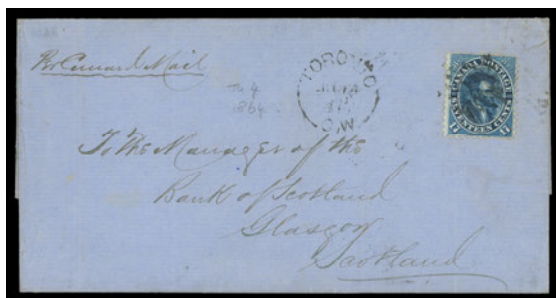 Per Cunard Mail
1864
TORONTO
C.W
CANADA POSTAGE
SEVENTEEN CENTS
To The Manager of the
Bank of Scotland
Glasgow
Scotland